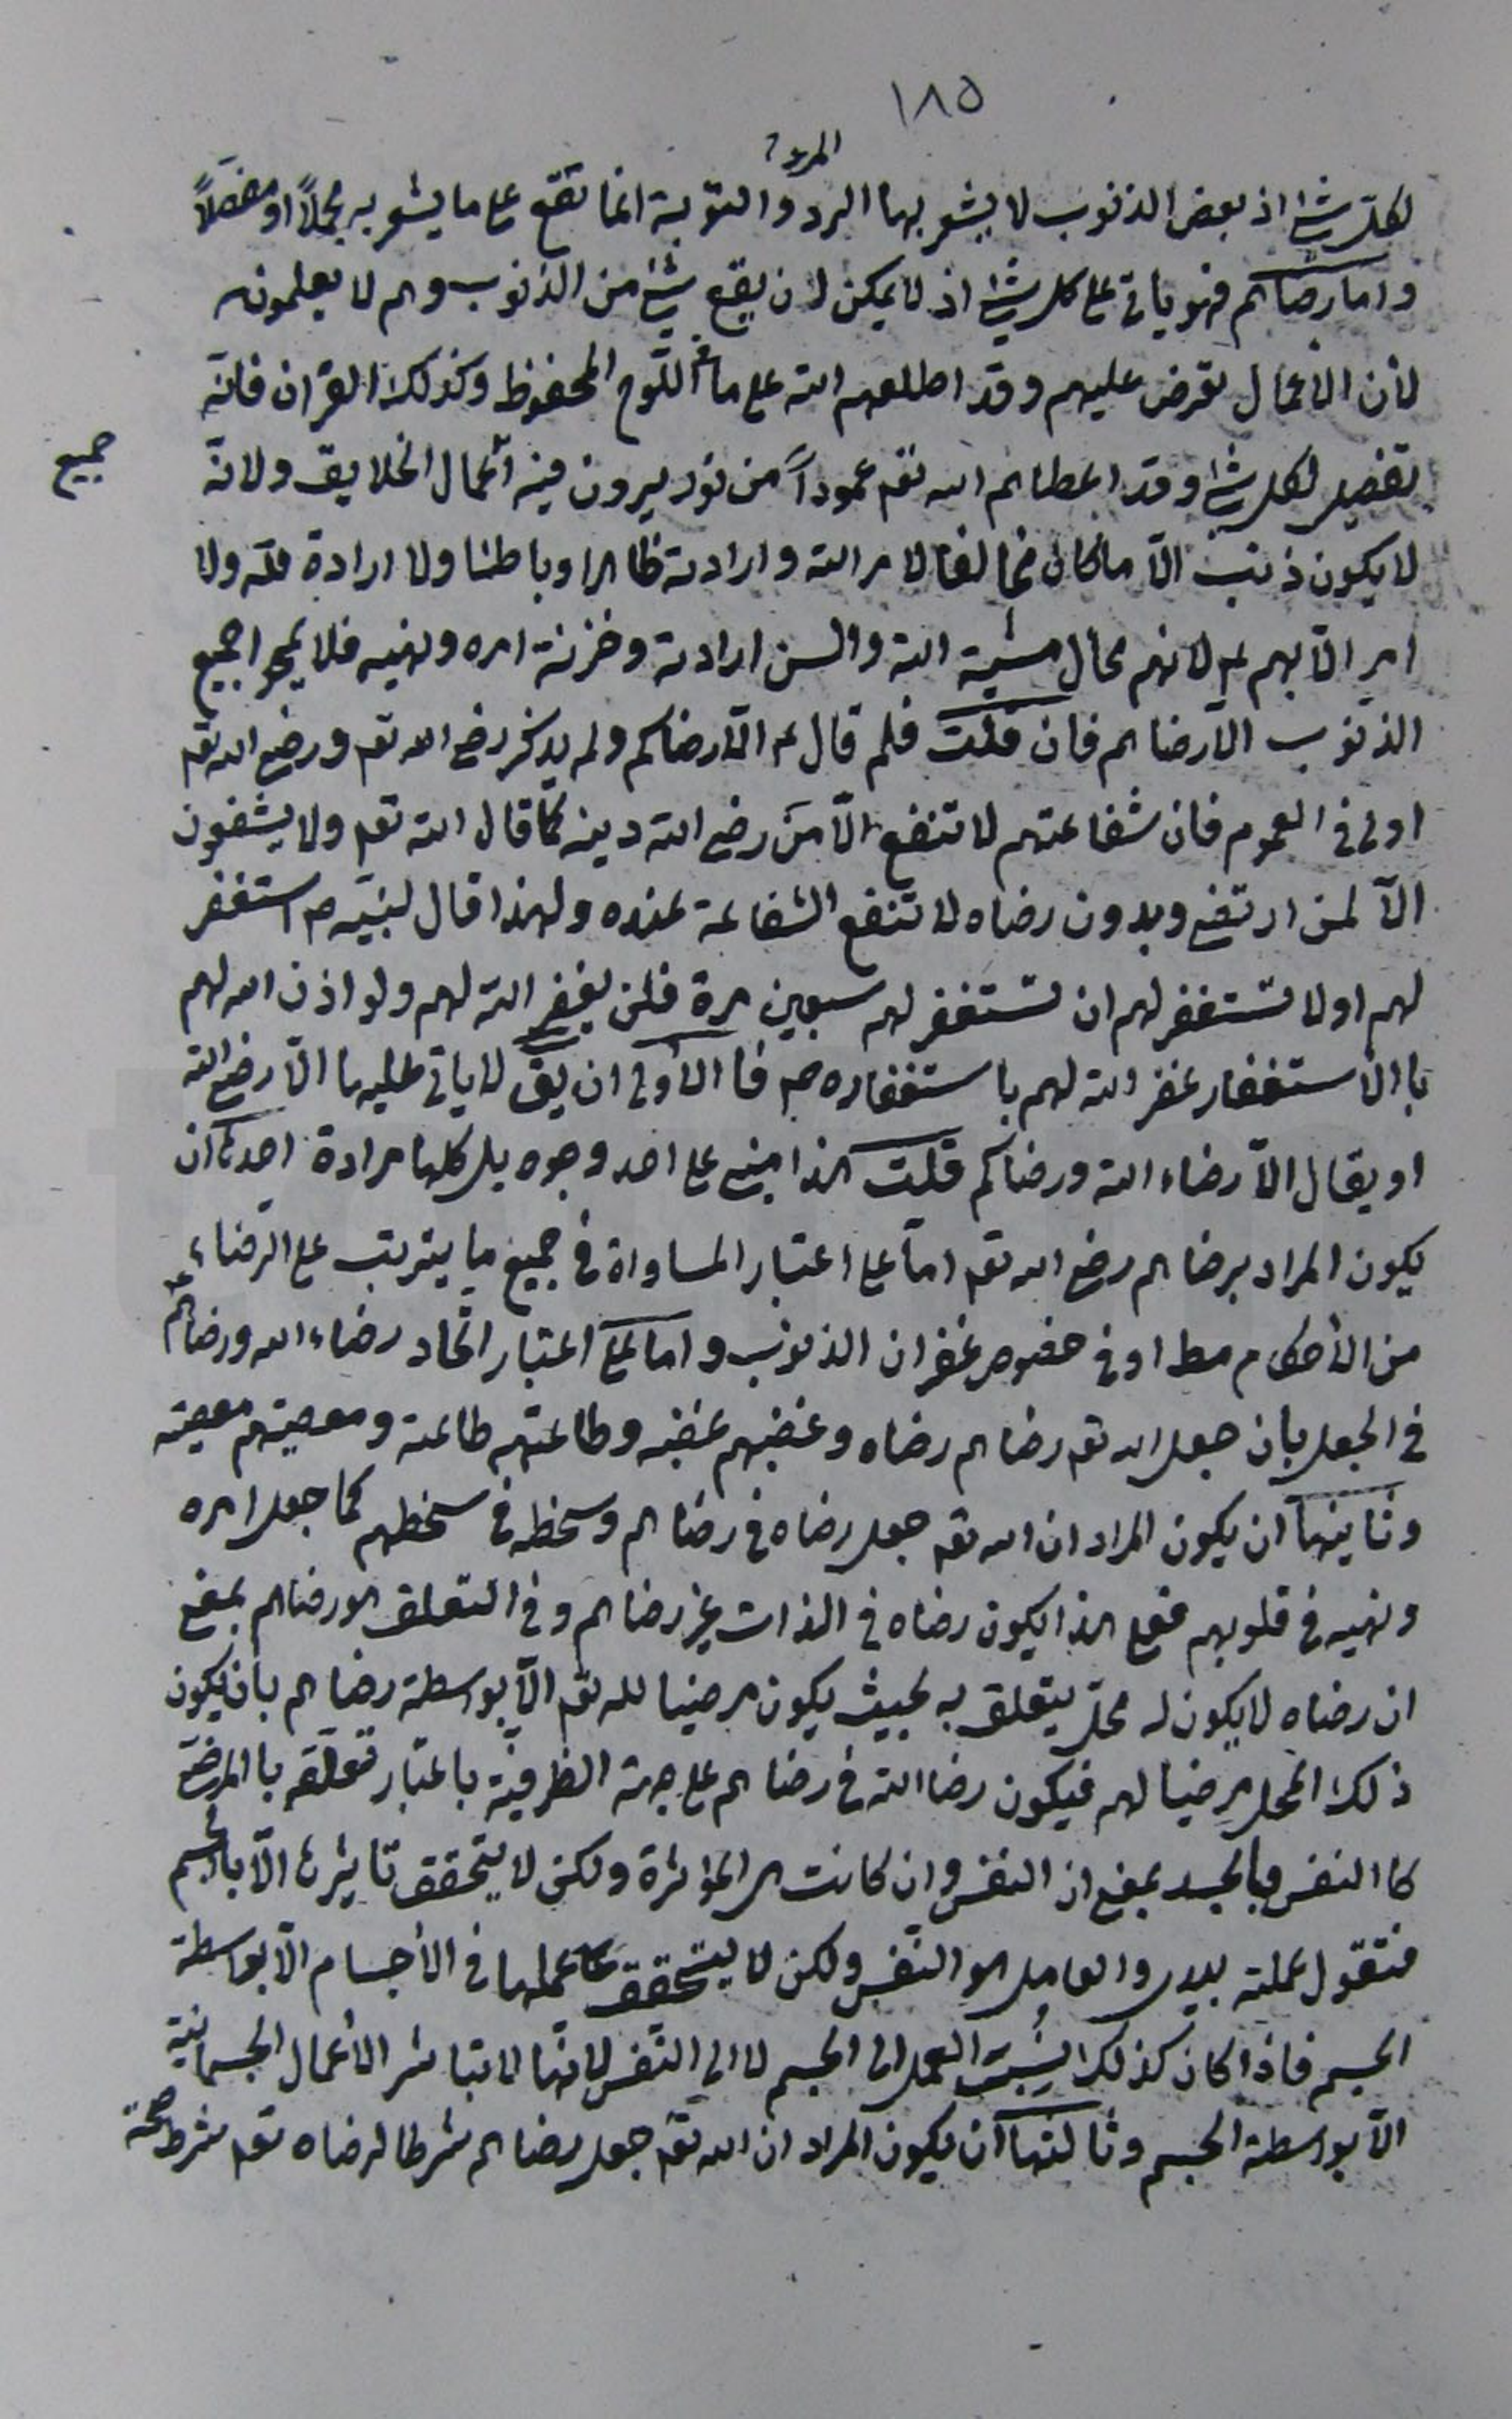 ١٨٥
المرء؟
لكل شئ اذ بعض الذنوب لا يشعر بها الرد والتوبة انما تقع على ما يشعر به مجملاً او مفصلاً
واما رضاهم فهو ياتى على كل شئ اذ لا يمكن ان يقع شئ من الذنوب وهم لا يعلمونه
لأن الأعمال تعرض عليهم وقد اطلعهم الله على ما فى اللوح المحفوظ وكذلك القران فانه
تفصيل لكل شئ وقد اعطاهم الله تع عموداً من نور يرون فيه اعمال الخلايق ولانه
جميع
لا يكون ذنب الّا ما كان مخالفا لامر الله وارادته ظاهرا وباطنا ولا ارادة لله ولا
امر الّا بهم ع لانهم محال مشية الله والسن ارادته وخزنة امره ونهيه فلا يمحوا جميع
الذنوب الّا رضاهم فان قلت فلم قال ع الّا رضاكم ولم يذكر رضى الله تع ورضى الله تع
اولى فى العموم فان شفاعتهم لا تنفع الّا من رضى الله دينه كما قال الله تع ولا يشفعون
الّا لمن ارتضى وبدون رضاه لا تنفع الشفاعة عنده ولهذا قال لنبيّه ص استغفر
لهم اولا تستغفر لهم ان تستغفر لهم سبعين مرة فلن يغفر الله لهم ولو اذن الله لهم
با الأستغفار غفر الله لهم باستغفاره ص فا الأولى ان يق لا ياتى عليها الّا رضى الله
او يقال الّا رضاء الله ورضاكم قلت هذا مبنى على احد وجوه بل كلها مرادة احدها ان
يكون المراد برضاهم رضى الله تع امّا على اعتبار المساواة فى جميع ما يترتب على الرضاء
من الأحكام مط او فى خصوص غفران الذنوب واما على اعتبار اتحاد رضاء الله ورضاهم ع
فى الجعل بان جعل الله تع رضاهم رضاه وغضبهم غضبه وطاعتهم طاعته ومعصيتهم معصيته
وثانيها ان يكون المراد ان الله تع جعل رضاه فى رضاهم وسخطه فى سخطهم كما جعل امره
ونهيه فى قلوبهم فعلى هذا يكون رضاه فى الذات غير رضاهم وفى التعلق هو رضاهم بمعنى
ان رضاه لا يكون له محل يتعلق به بحيث يكون مرضيا لله تع الّا بواسطة رضاهم بان يكون
ذلك المحل مرضيا لهم فيكون رضا الله فى رضاهم على جهة الظرفية باعتبار تعلقه با المرضى
كا النفس با الجسد بمعنى ان النفس وان كانت هى المؤثرة ولكن لا يتحقق تاثيرها الّا با لجسم
فتقول عملته بيدى والعامل هو النفس ولكن لا يتحقق عملها فى الأجسام الّا بواسطة
الجسم فاذا كان كذلك نسبت العمل الى الجسم لا الى النفس لانها لا تباشر الأعمال الجسمانية
الّا بواسطة الجسم وثالثها ان يكون المراد ان الله تع جعل رضاهم شرطا لرضاه تع شرط صحة